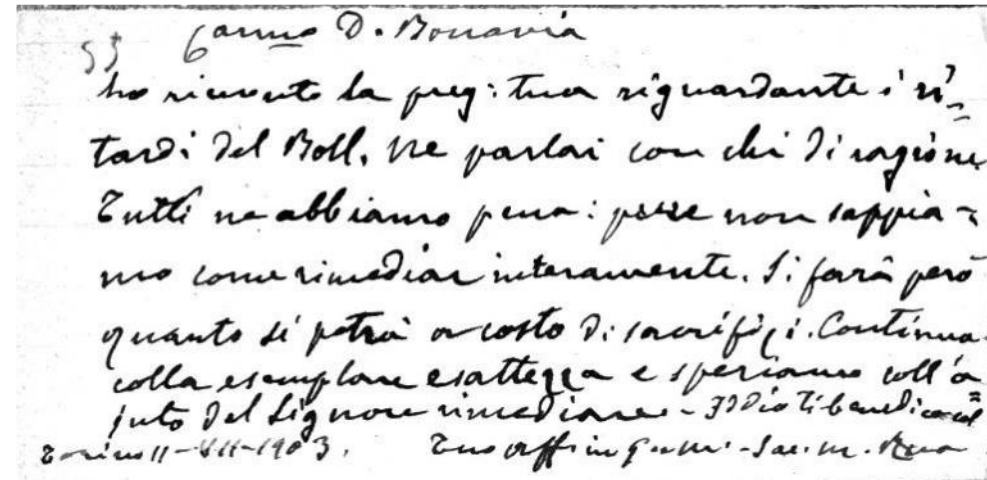 Carmo D. Bonavia
ho ricevuto la preg: tua riguardante i ri=
tardi del Boll. Ne parlai con chi di ragione
Tutti ne abbiamo pena: non sappia=
mo come rimediar interamente. Si farà però
quanto si potrà a costo di sacrifizi. Continua
colla esemplare esattezza e speriamo coll'a
juto del Signore rimediare - Iddio ti benedica
Torino 11-VII-1903. Tuo aff in G. - Sac. M. Rua